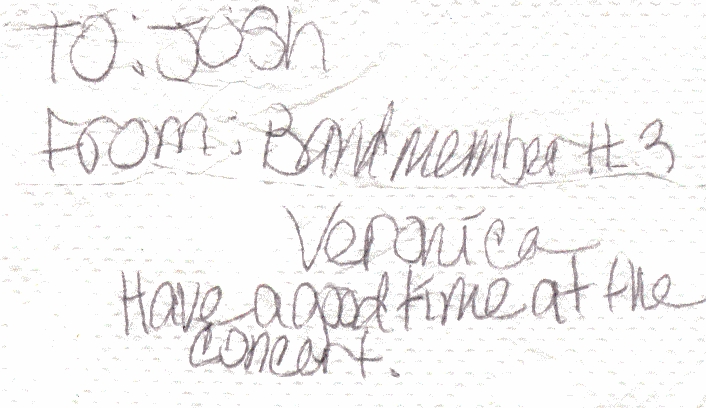 To: Josh
From: Band member # 3
Veronica
Have a good time at the
concert.